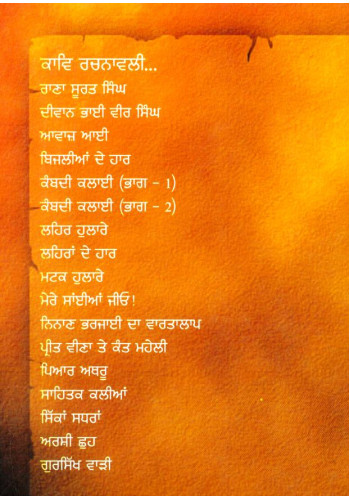 ਕਾਵਿ ਰਚਨਾਵਲੀ...
ਰਾਣਾ ਸੂਰਤ ਸਿੰਘ
ਦੀਵਾਨ ਭਾਈ ਵੀਰ ਸਿੰਘ
ਆਵਾਜ਼ ਆਈ
ਬਿਜਲੀਆਂ ਦੇ ਹਾਰ
ਕੰਬਦੀ ਕਲਾਈ (ਭਾਗ - 1)
ਕੰਬਦੀ ਕਲਾਈ (ਭਾਗ - 2)
ਲਹਿਰ ਹੁਲਾਰੇ
ਲਹਿਰਾਂ ਦੇ ਹਾਰ
ਮਟਕ ਹੁਲਾਰੇ
ਮੇਰੇ ਸਾਂਈਆਂ ਜੀਓ!
ਨਿਨਾਣ ਭਰਜਾਈ ਦਾ ਵਾਰਤਾਲਾਪ
ਪ੍ਰੀਤ ਵੀਣਾ ਤੇ ਕੰਤ ਮਹੇਲੀ
ਪਿਆਰ ਅਥਰੂ
ਸਾਹਿਤਕ ਕਲੀਆਂ
ਸਿੱਕਾਂ ਸਧਰਾਂ
ਅਰਸ਼ੀ ਛੁਹ
ਗੁਰਸਿੱਖ ਵਾੜੀ